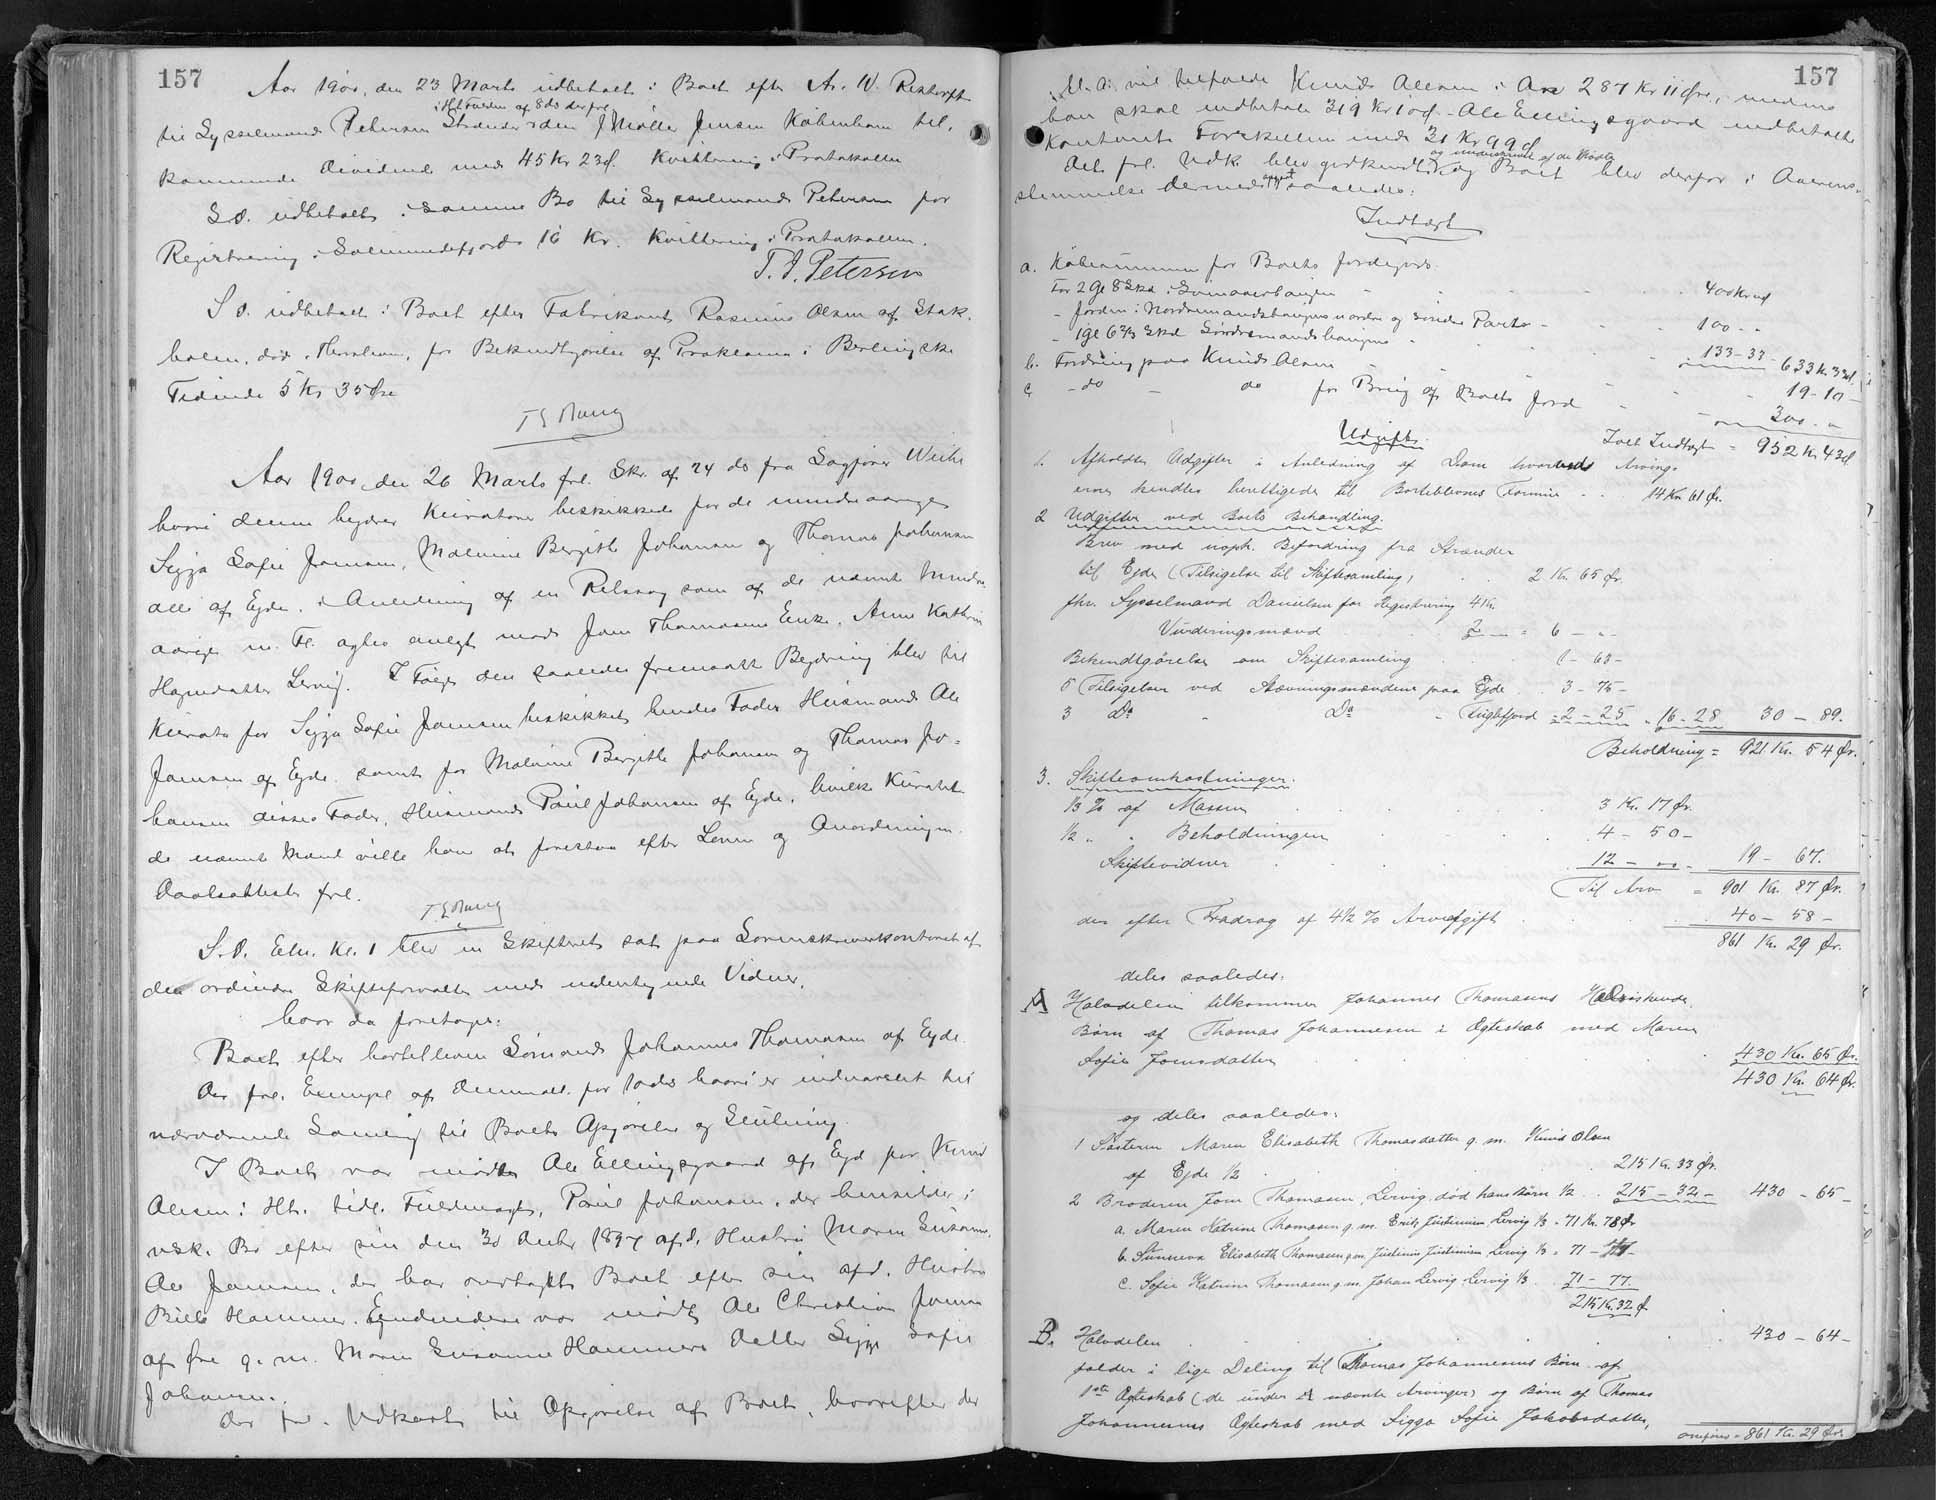 157
Aar 1900, den 23 Marts udbetalt i Boet efter A. W. Restorff
i Henhold af 8 ds der frel.
til Sysselmand Petersen Strender den J Møller Jensen København til,
kommende Dividende med 45 Kr 23 Ø. Kvittering i Protokollen
S.D. udbetalt i samme Bo til Sysselmand Petersen for
Registrering i Solmundefjord 16 Kr. Kvittering i Protokollen.
T. J. Petersen
S.D. udbetalt i Boet efter Fabrikant Rasmus Olsen af Stok,
holm, død i Thorshavn, for Bekendtgørelse af Proklama i Berlingske
Tidende 5 Kr 35 Øre
Aar 1900, den 26 Marts frel. Skr. af 24 ds fra Sagfører Weihe
hvori denne begærer Kuratorer beskikkede for de mindreaarige
Sigga Sofie Joensen, Malvine Bergitte Johansen og Thomas Johansen
alle af Ejde, i Anledning af en Retssag som af de nævnte Mindre-
aarige m. Fl. agtes anlagt mod Joen Thomasens Enke, Anne Kathrine
Hansdatter Lervig. I Følge den saaledes fremsatte Begæring blev til
Kurator for Sigga Sofie Joensen beskikket hendes Fader Husmand Ole
Joensen af Ejde samt for Malvine Bergitte Johansen og Thomas Jo-
hansen disses Fader, Husmand Poul Johansen af Ejde, hvilke Kuratel
de nævnte Mænd ville have at forestaa efter Loven og Anordningen.
Daabsattester frel.
S.D. Em. Kl. 1 blev en Skifteret sat paa Sorenskriverkontoret af
den ordinære Skifteforvalter med undertegnede Vidner,
hvor da foretoges:
Boet efter bortblevne Sømand Johannes Thomasen af Ejde.
Der frel. Exempl. af Dimmalt. for 10 ds hvori er indvarslet til
nærværende Samling til Boets Opgørelse og Slutning.
I Boet var mødt Ole Ellingsgaard af Ejde for Knud
Olesen i Hh. til dl. Fuldmagt, Poul Johansen, der hensidder i
usk. Bo efter sin den 30 1897 afd. Hustru Maren Susanne,
Ole Joensen, der har overtaget Boet efter sin afd. Hustru
Bille Hammer. Endvidere var mødt Ole Christian Joensen
af Øre g. m. Maren Susanne Hammers Datter Sigga Sofie
Johansen.
Der frel. Udkast til Opgørelse af Boet, hvorefter der
157
bl. A. vil tilfalde Knud Olesen i Arv 287 Kr 11 Øre, medens
han skal indbetale 319 Kr 10 Ø. - Ole Ellingsgaard indbetalte
kontant Forskellen med 31 Kr 99 Ø.
og underskrevet af de Mødte
Det frl. Udk. blev godkendt og Boet blev derfor i Overens-
stemmelse dermed opgjort saaledes:
Indtægt
a. Købesummen for Boets Jordegods.
For 2 Gl 8 Skd i - 400 Kr nd
- Jorden i Nordremandshaugens nordre og søndre Parter - 100 - "
- 1 gl 6 2/3 Skd Søndremandshaugens - 133 - 33 - 633 Kr. 33 Ø.
b. Fordring paa Knud Olesen - 19 - 10 -
c - do - do for Brug af Boets Jord - 300 - "
Ialt Indtægt = 952 Kr 43 Ø
Udgift.
1. Afholdte Udgifter i Anledning af Dom hvorved Arving-
erne kendtes berettigede til Bortblevnes Formue . . 14 Kr 61 Ør.
2 Udgifter ved Boets Behandling.
Brev med uoph. Befordring fra Strænder
til Ejde (Tilsigelse til Skiftesamling) . 2 Kr. 65 Ør.
fhv. Sysselmand Danielsen for Registrering 4 Kr.
Vurderingsmænd . 2 - " = 6 - " -
Bekendtgørelse om Skiftesamling . 1 - 63 -
5 Tilsigelser ved Stævningsmændene paa Ejde . 3 - 75 -
3 Do - Do - Funglefjord = 2 - 25 = 16 - 28 30 - 89.
Beholdning = 921 Kr. 54 Ør.
3. Skifteomkostninger.
1/3 % af Massen . 3 Kr. 17 Ør.
1/2 " " Beholdningen . 4 - 50 -
Skiftevidner . 12 - " - 19 - 67.
Til Arv = 901 Kr. 87 Ør.
der efter Fradrag af 4 1/2 % Arveafgift . 40 - 58 -
861 Kr. 29 Ør.
deles saaledes:
A Halvdelen tilkommer Johannes Thomasens Helsøskende,
Børn af Thomas Johannesen i Ægteskab med Maren
Sofie Joensdatter . 430 Kr. 65 Ør.
430 Kr. 64 Ør.
og deles saaledes:
1 Søsteren Maren Elisabeth Thomasdatter g. m. Knud Olsen
af Ejde 1/2 . 215 Kr. 33 Ør.
2 Broderen Joen Thomasen, Lervig, død hans Børn 1/2 . . 215 - 32 - 430 - 65 -
a. Maren Katrine Thomasen g. m. Erik Justinussen Lervig 1/3 = 71 Kr. 78 Ør
b. Sunneva Elisabeth Thomasen g. m. Justinus Justinussen Lervig 1/3 = 71 - 77 -
c. Sofie Katrine Thomasen g. m. Johan Lervig, Lervig 1/3 . 71 - 77.
215 Kr. 32 Ø
B. Halvdelen . 430 - 64 -
falder i lige Deling til Thomas Johannesens Børn af
1ste Ægteskab (de under A nævnte Arvinger) og Børn af Thomas
Johannesens Ægteskab med Sigga Sofie Jakobsdatter,
overføres = 861 Kr. 29 Ør.